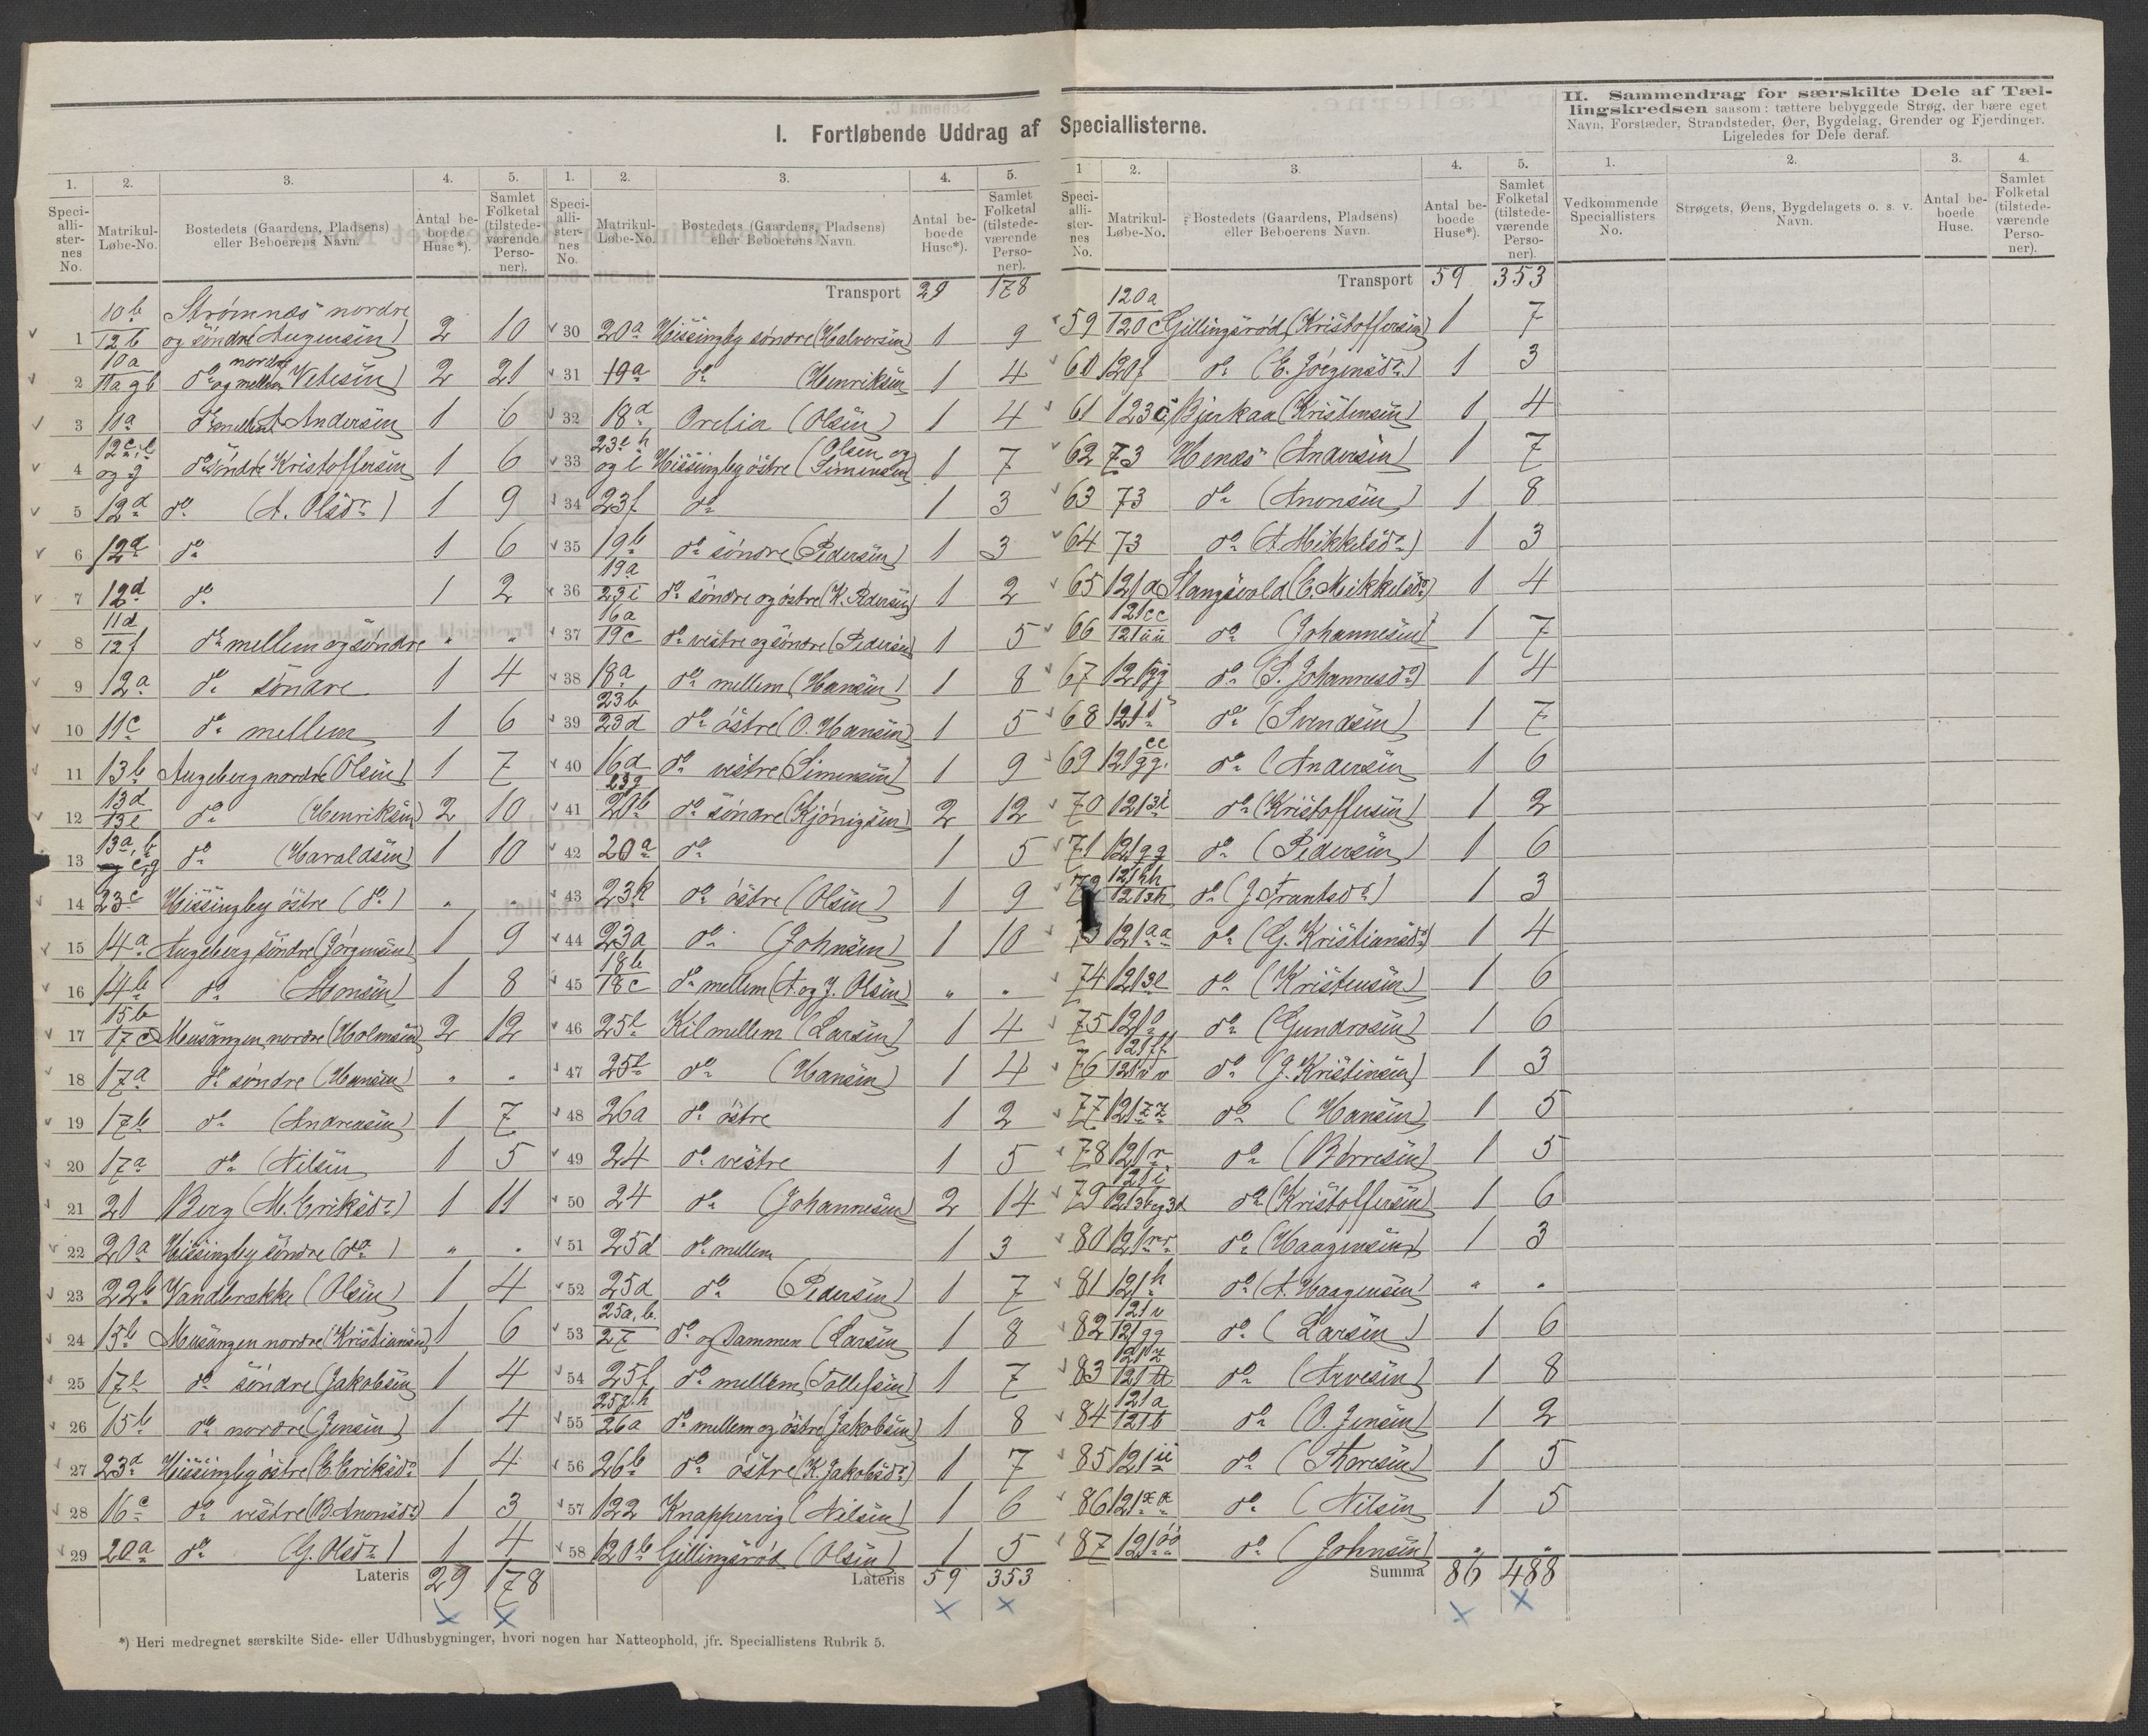 I. Fortløbende Uddrag af Speciallisterne.
II. Sammendrag for særskilte Dele af Tæl-
lingskredsen saasom: tættere bebyggede Strøg, der bære eget
Navn, Forstæder, Strandsteder, Øer, Bygdelag, Grender og Fjerdinger.
Ligeledes for Dele deraf.
1. 2. 3. 4. 5.
Speci-alli-ster-nes No. Matrikul-Løbe-No. Bostedets (Gaardens, Pladsens) eller Beboerens Navn. Antal be-boede Huse*). Samlet Folketal (tilstede-værende Perso-ner).
1 10b/12b Strømnæs nordre og söndre (Augensen) 2 10
2 10a/11a og b do nordre og mellem Vetesen) 2 21
3 11a do mellem A Andersen 1 6
4 12c, e og g do söndre Kristoffersen 1 6
5 12d do (A. Olsdr) 1 9
6 12d do 1 6
7 12d do 1 2
8 11d/12f do mellem og søndre " "
9 12a do söndre 1 4
10 11c do mellem 1 6
11 13b Augeberg nordre (Olsen) 1 7
12 13d/13e do (Henriksen) 2 10
13 13a, b c, g do (Haraldsen) 1 10
14 23c Hissingby östre (do) " "
15 14a Augeberg söndre (Jörgensen) 1 9
16 14b do 1 8
17 15b/17c Musangen nordre (Holmsen) 2 12
18 17a do søndre (Hansen) " "
19 17b do (Andreasen) 1 7
20 17a do (Nilsen 1 5
21 21 Berg (M. Eriksdr) 1 11
22 20a Hissingby söndre (do) " "
23 22b Vandbrække (Olsen) 1 4
24 15b Musangen nordre (Kristiansen) 1 6
25 17e do söndre (Jakobsen 1 4
26 15b do nordre (Jensen) 1 4
27 23d Hissingby östre (E. Eriksdr 1 4
28 16c do vestre (B. Anonsdr) 1 3
29 20a do (G. Olsdr) 1 4
Lateris 29 178
1. 2. 3. 4. 5.
Speci-alli-ster-nes No. Matrikul-Løbe-No. Bostedets (Gaardens, Pladsens) eller Beboerens Navn. Antal be-boede Huse*). Samlet Folketal (tilstede-værende Perso-ner).
Transport 29 178
30 20a Hissingby søndre (Halvorsen) 1 9
31 19a do (Henriksen 1 4
32 18d Orelia (Olsen) 1 4
33 23e h og i Hissingby östre (Olsen og Simensen) 1 7
34 23f do 1 3
35 19b do söndre (Pedersen) 1 3
36 19a/23i do söndre og östre (K. Pedersen) 1 2
37 16a/19c do vestre og söndre (Pedersen) 1 5
38 18a do mellem (Hansen) 1 8
39 23b/23d do östre (O. Hansen) 1 5
40 16d do vestre (Simensen) 1 9
41 23g/20b do söndre (Kjönigsen) 2 12
42 20a do 1 5
43 23k do östre (Olsen) 1 9
44 23a do (Johnsen) 1 10
45 18b/18c do mellem (A. og J. Olsen) " "
46 25e Kil mellem (Larsen) 1 4
47 25e do (Hansen) 1 4
48 26a do östre 1 2
49 24 do vestre 1 5
50 24 do (Johannesen) 2 14
51 25d do mellem 1 3
52 25d do (Pedersen) 1 7
53 25a, b/27 do og Dammen (Larsen 1 8
54 25f do mellem (Tollefsen) 1 7
55 25g, h/26a do mellem og östre (Jakobsen) 1 8
56 26b do östre (K. Jakobsdr) 1 7
57 122 Knappervig (Nilsen) 1 6
58 120b Gillingsröd (Olsen) 1 5
Lateris 59 353
1 2. 3. 4. 5.
Speci-alli-ster-nes No. Matrikul-Løbe-No. Bostedets (Gaardens, Pladsens) eller Beboerens Navn. Antal be-boede Huse*). Samlet Folketal (tilstede-værende Perso-ner).
Transport 59 353
59 120a/120c Gillingsröd (Kristoffersen) 1 7
60 120f do (E. Jörgensdr) 1 3
61 123c Bjerkaa (Kristensen) 1 4
62 73 Henæs (Andersen) 1 7
63 73 do (Anonsen) 1 8
64 73 do (A. Mikkelsdr) 1 3
65 121a Slangsvold (E. Mikkelsdr) 1 4
66 121cc/121üü do (Johannesen) 1 7
67 121gg do (S. Johannesdr) 1 4
68 121 do (Svendsen) 1 7
69 121 do (Andersen 1 6
70 121 do (Kristoffersen) 1 2
71 121gg do (Pedersen) 1 6
72 121hh do (J. Frantsdr) 1 3
73 121aa do (G. Kristiansdr) 1 4
74 121 do (Kristensen) 1 6
75 121 do (Gundrosen) 1 6
76 121ff/121vv do (J. Kristinsen) 1 3
77 121zz do (Hansen) 1 5
78 121r do (Börresen) 1 5
79 121i do (Kristoffersen) 1 6
80 121rr do (Haagensen) 1 3
81 121h do (A. Haagensen) " "
82 121v/121gg do (Larsen) 1 6
83 121z/121tt do (Arvesen) 1 8
84 121a/121b do (O. Jensen) 1 2
85 121ii do (Thoresen) 1 5
86 121 do (Nilsen 1 5
87 121öö do (Johnsen) " "
Summa 86 488
1. 2. 3. 4.
Vedkommende Speciallisters No. Strøgets, Øens, Bygdelagets o. s. v. Navn. Antal be-boede Huse. Samlet Folketal (tilstede-værende Perso-ner).
*) Heri medregnet særskilte Side- eller Udhusbygninger, hvori nogen har Natteophold, jfr. Speciallistens Rubrik 5.